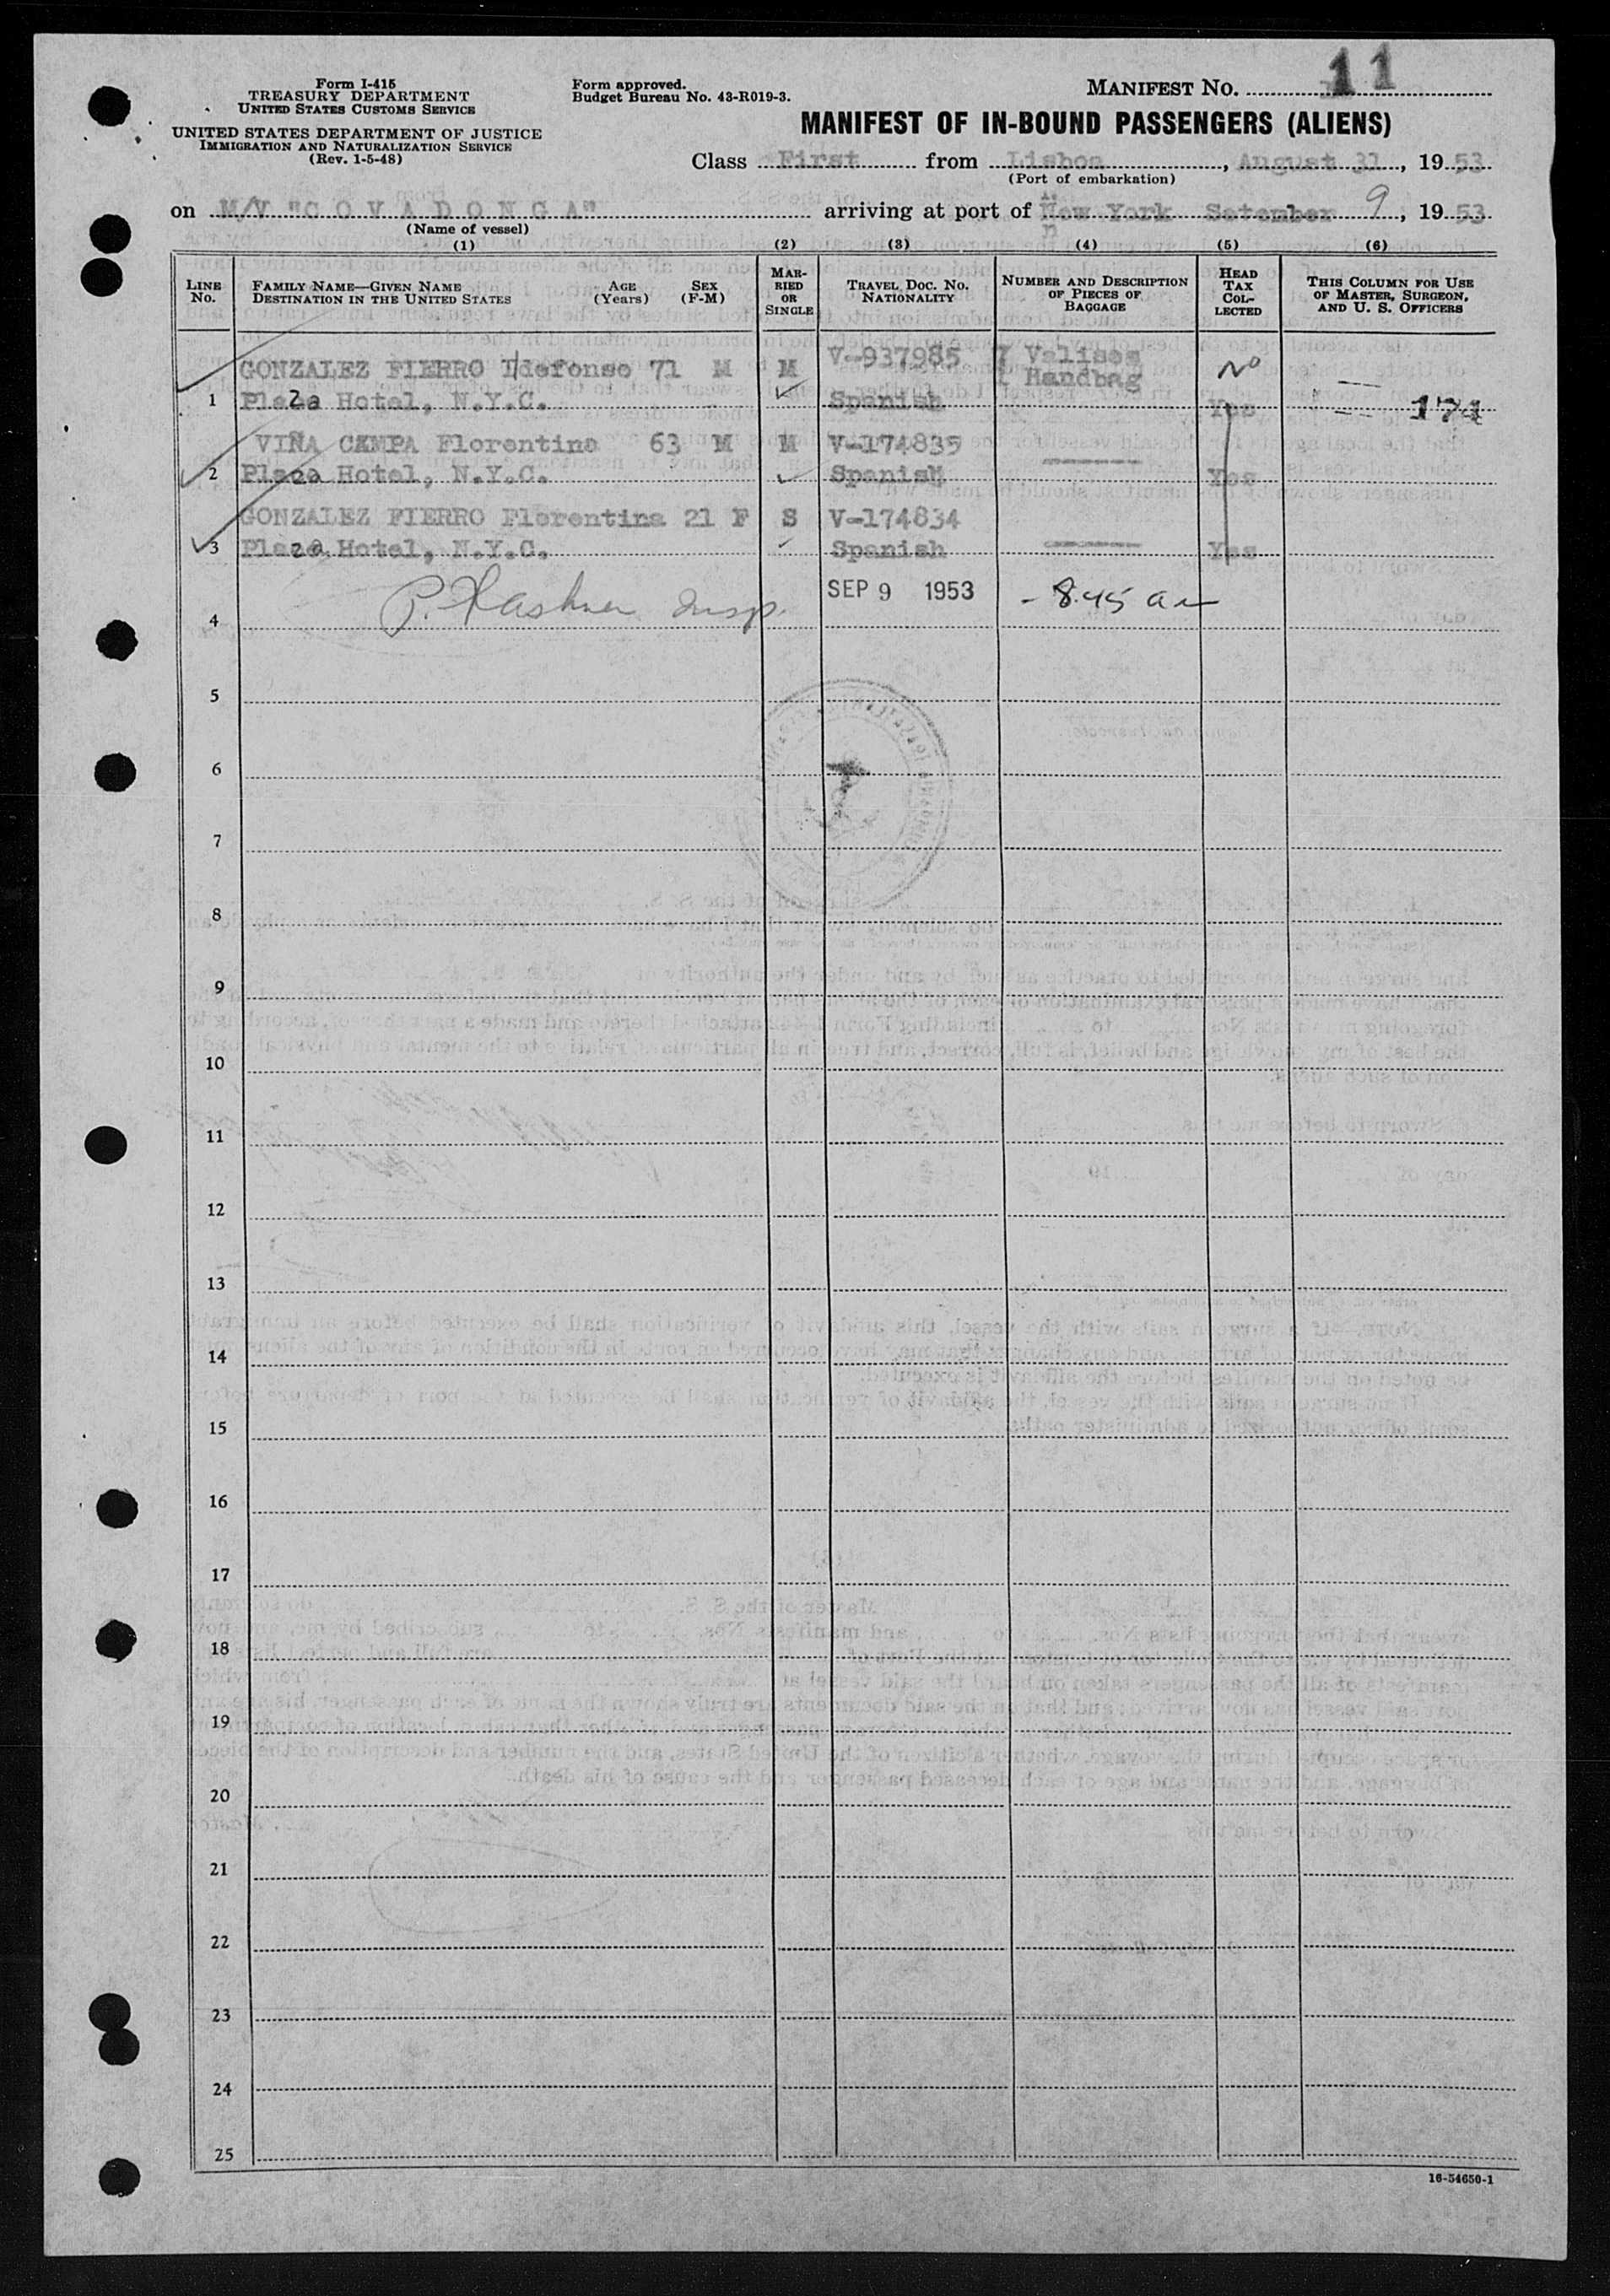 Form I-415
TREASURY DEPARTMENT
UNITED STATES CUSTOMS SERVICE
UNITED STATES DEPARTMENT OF JUSTICE
IMMIGRATION AND NATURALIZATION SERVICE
(Rev. 1-5-48)
Form approved.
Budget Bureau No. 43-R019-3.
MANIFEST NO. 11
MANIFEST OF IN-BOUND PASSENGERS (ALIENS)
Class First from Lisboa, August 31, 1953
(Port of embarkation)
on M/V "C O V A D O N G A" arriving at port of New York Setember 9, 1953
(Name of vessel)
(1) (2) (3) (4) (5) (6)
LINE NO. FAMILY NAME—GIVEN NAME DESTINATION IN THE UNITED STATES AGE (Years) SEX (F-M) MARRIED OR SINGLE TRAVEL DOC. NO. NATIONALITY NUMBER AND DESCRIPTION OF PIECES OF BAGGAGE HEAD TAX COLLECTED THIS COLUMN FOR USE OF MASTER, SURGEON, AND U. S. OFFICERS
GONZALEZ FIERRO Ildefonso 71 M M V-937985 7 Valises
1 Handbag No
1 Plaza Hotel, N.Y.C. Spanish Yes 174
VIÑA CAMPA Florentino 63 M M V-174835
2 Plaza Hotel, N.Y.C. Spanish Yes
GONZALEZ FIERRO Florentina 21 F S V-174834
3 Plaza Hotel, N.Y.C. Spanish Yes
4 Insp. SEP 9 1953 - 8:45 am
5
6
7
8
9
10
11
12
13
14
15
16
17
18
19
20
21
22
23
24
25
16-54650-1